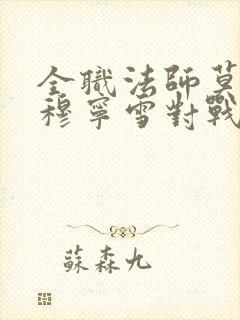 全職法師莫
穆寧雪對戰
蘇森九